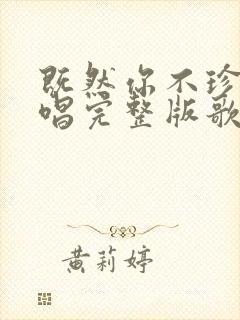 既然你不珍
唱完整版歌
黄莉婷